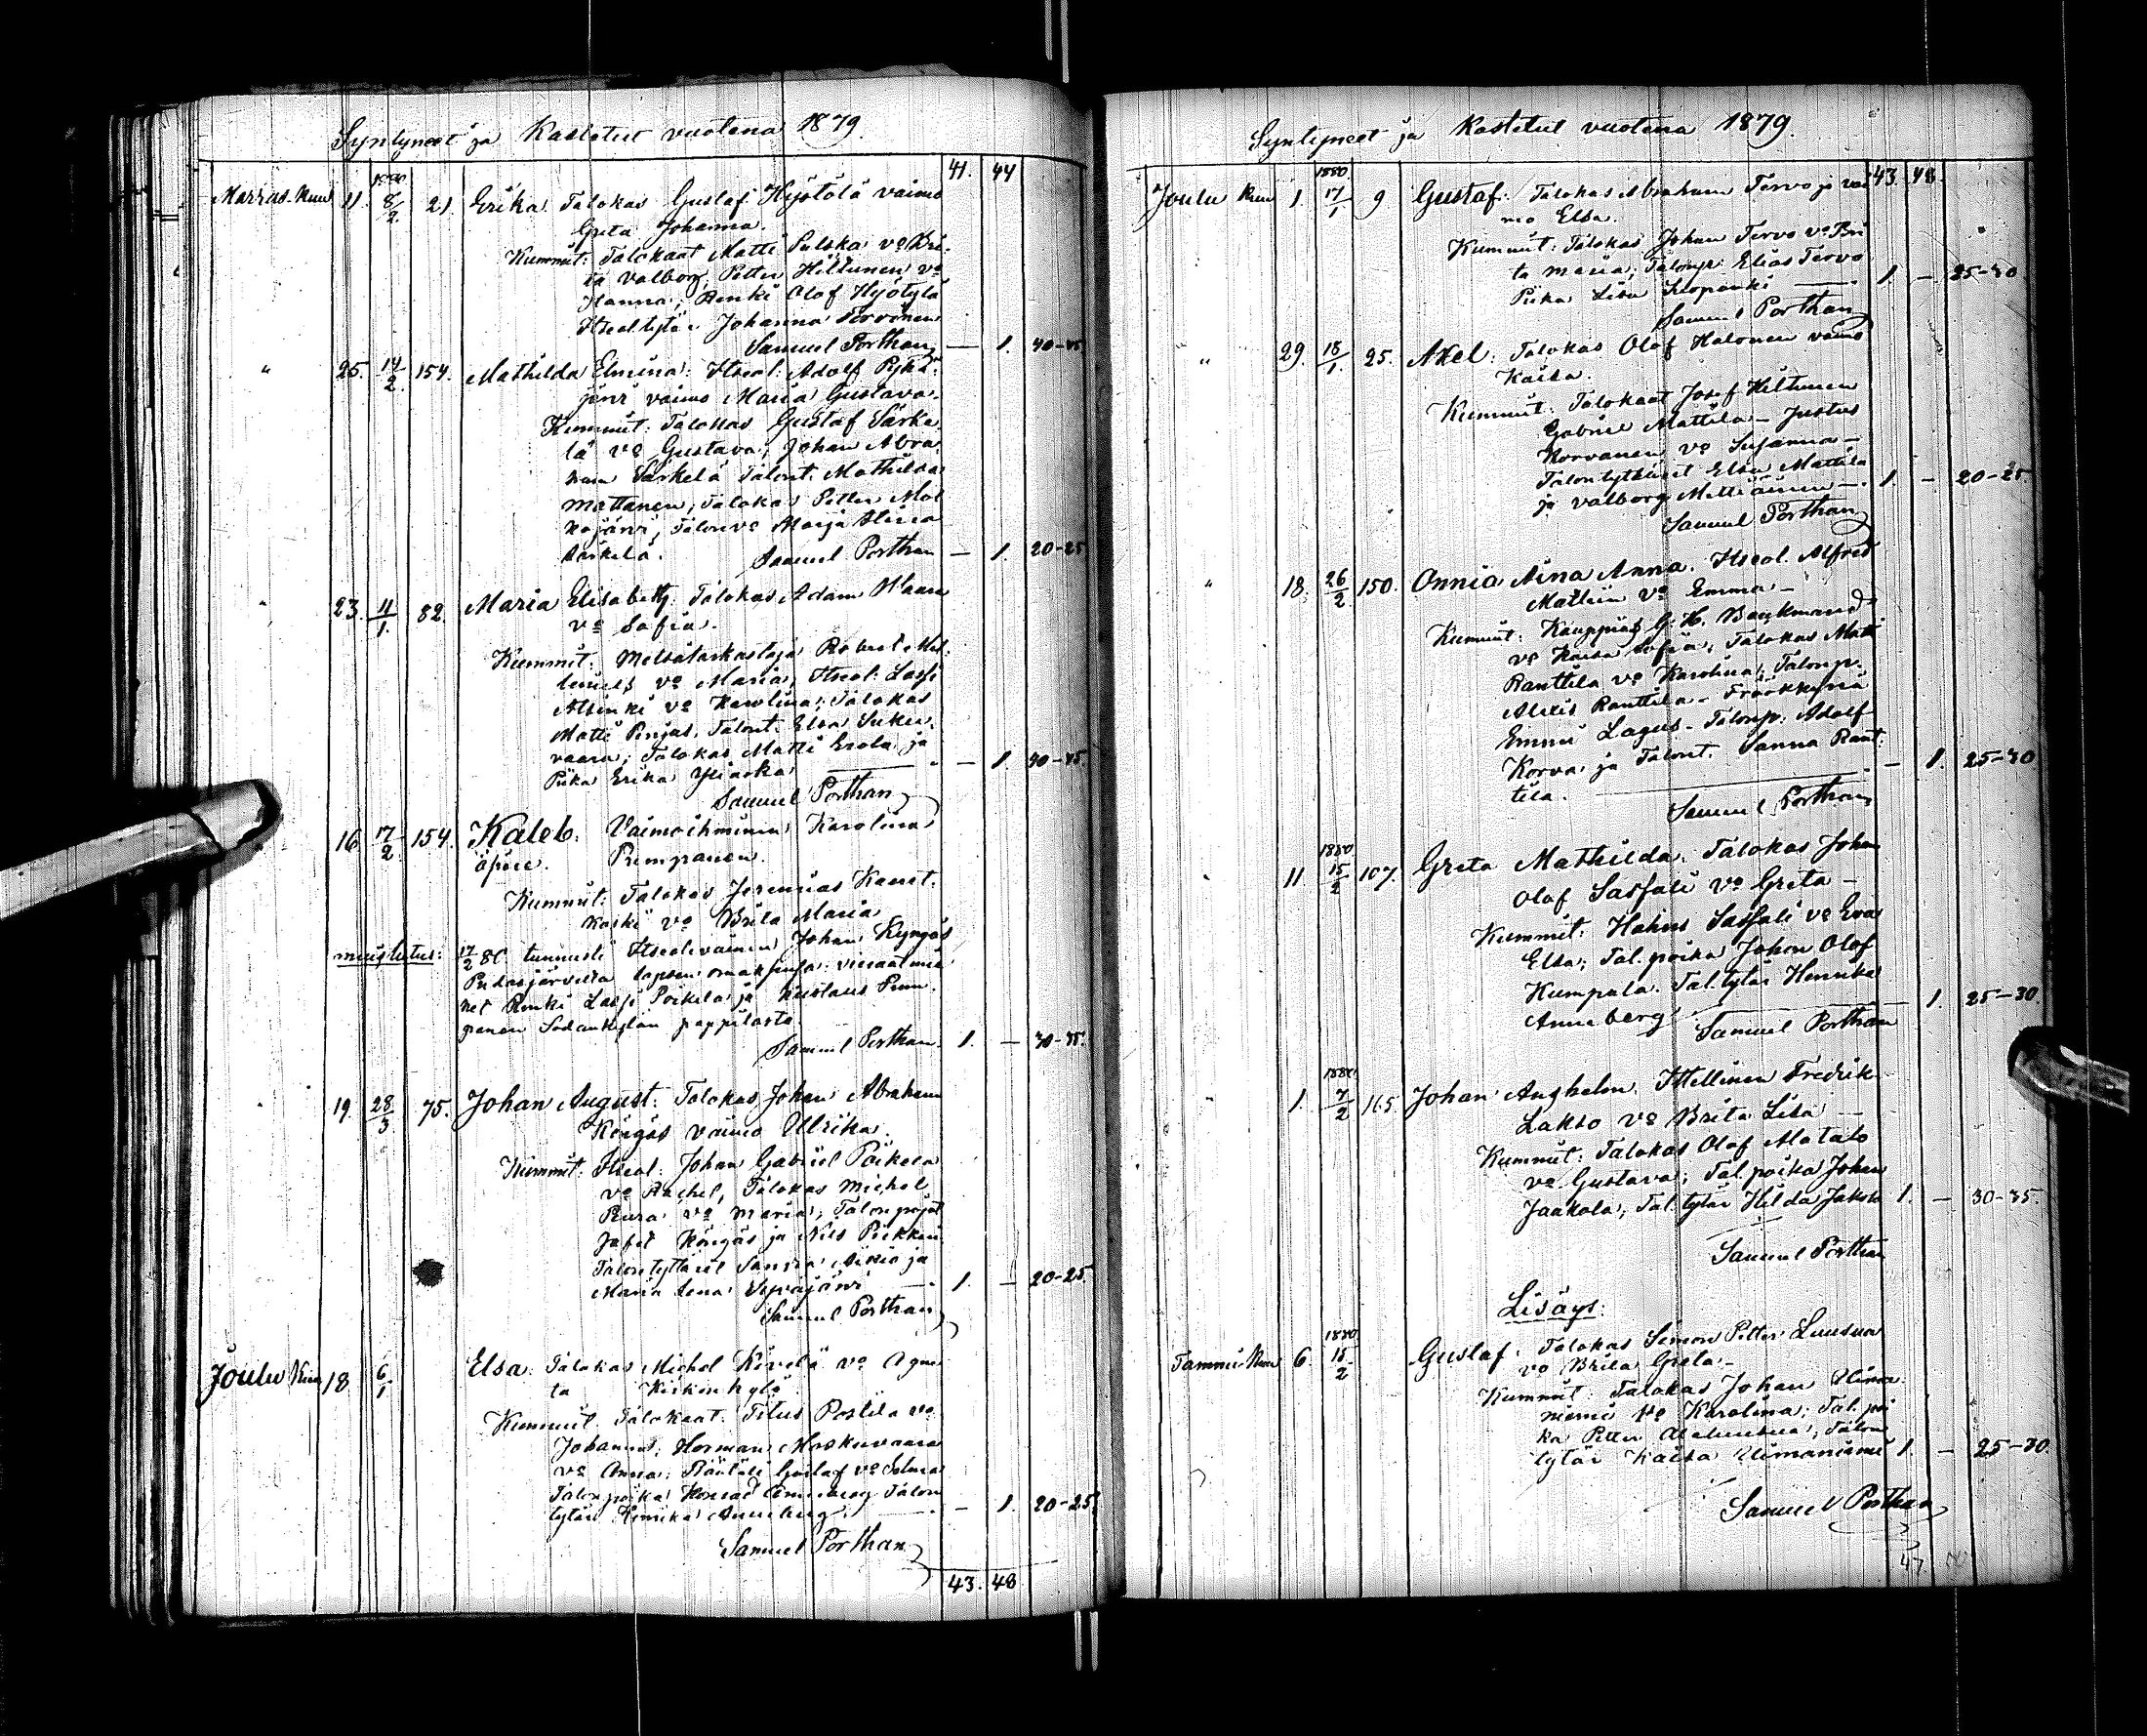 Syntyneet ja Kastetut vuotena 1879.
41. 44
Marras-Kuu 11. 8/2. 21. Erika. Talokas Gustaf Hyötylä vaimo
Greta Johanna.
Kummit: Talokaat Matti Pulska vo Bri-
ta Valborg, Petter Hiltunen vo
Hanna; Renki Olof Hyötylä
Itseol. tytär Johanna Tervonen
Samuel Porthan — 1. 40-45
" 25. 14/2. 154. Mathilda Elmina: Itseol. Adolf Pyhä-
järvi vaimo Maria Gustava.
Kummit: Talokas Gustaf Särke-
lä vo Gustava; Johan Abra-
ham Särkelä Talont. Mathilda
Mattanen, Talokas Petter
Särkelä. Samuel Porthan — 1. 20-25
" 23. 11/1. 82. Maria Elisabeth: Talokas Adam
vo Sofia.
Kummit: Metsätarkastaja Robert
vo Maria, Itseol. Lassi
vo Karolina; Talokas
Matti Talont. Elsa
vaara; Talokas Matti Erola ja
Piika Erika — 1. 40-45.
Samuel Porthan
16. 17/2. 154. Kaleb. Vaimoihminen Karolina
äpäre. Pumpanen.
Kummit: Talokas Jeremias
koski vo Brita Maria
muistutus: 17/2 80 tunnusti Itsellisvainen Johan Kyngäs
Pudasjärveltä lapsen omaksensa: vieraatmie-
het Renki Lassi Poikela ja Kustaus Pum-
panen Sodankylän pappilasta.
Samuel Porthan. 1. — 30-35.
19. 28/3 75. Johan August: Talokas Johan Abraham
Köngäs vaimo Ullrika.
Kummit: Itseol: Johan Gabriel Poikela
vo Rachel, Talokas Michel
Peura vo Maria; Talonpojat
Jafet Köngäs ja Nils
Talontyttäret Sanna Aikio ja
Maria Lena Seipäjärvi 1. — 20-25.
Samuel Porthan
Joulu Kuu 18. 6/1. Elsa: Talokas Michel Kivelä vo Agne-
ta
Kummit Talokaat: Titus Postila vo
Johanna; Herman Moskuvaara
vo Anna; Räätäli Gustaf vo
Talonpoika Konrad Anneberg Talon
tytär Henrika Anneberg. — 1 20-25.
Samuel Porthan
43. 48
Syntyneet ja Kastetut vuotena 1879.
43. 48.
Joulu Kuu 1. 1880. 17/1 9 Gustaf: Talokas Abraham Tervo ja vai-
mo Elsa.
Kummit: Talokas Johan Tervo vo Bri
ta Maria; Talonp: Elias Tervo
Piika Lisa 1. — 25-30
Samuel Porthan
" 29. 18/1. 25. Axel: Talokas Olof Halonen vaimo
Kaisa.
Kummit: Talokaat Josef Hiltunen
Gabriel Mattila — Justus
Korvanen vo Susanna —
Talontyttäret Elsa Mattila
ja Valborg —. 1. — 20-25.
Samuel Porthan
" 18. 26/2 150. Onnia Aina Anna. Itseol. Alfred
vo Emma —
Kummit: Kauppias G. H. Backman
vo Kaisa Sofia; Talokas Matti
Ranttila vo Karolina; Talonp.
Alexis Ranttila — Fröökkynä
Emmi Lagus — Talonp: Adolf
Korva ja Talont. Sanna Rant-
tila. — 1. 25-30
Samuel Porthan
11. 1880 15/2 107. Greta Mathilda. Talokas Johan
Olof Sassali vo Greta —
Kummit: Sassali vo Eva
Elsa; Tal. poika Johan Olof
Kumpula. Tal. tytär Henrika
Anneberg 1. 25-30
Samuel Porthan
" 1. 1880. 7/2 165. Johan Fredrik
Lakso vo Brita Lisa —
Kummit: Talokas Olof Alatalo
vo Gustava; Tal. poika Johan
Jaakola; Tal. tytär Hilda 1. — 30-35.
Samuel Porthan
Lisäys:
Tammi-Kuu 6. 1880. 15/2 Gustaf. Talokas Simon Petter Luusua
vo Brita Greta —
Kummit: Talokas Johan
niemi vo Karolina; Tal. poi
ka Petter Talon
tytär Kaisa 1. — 25-30.
Samuel Porthan
47.